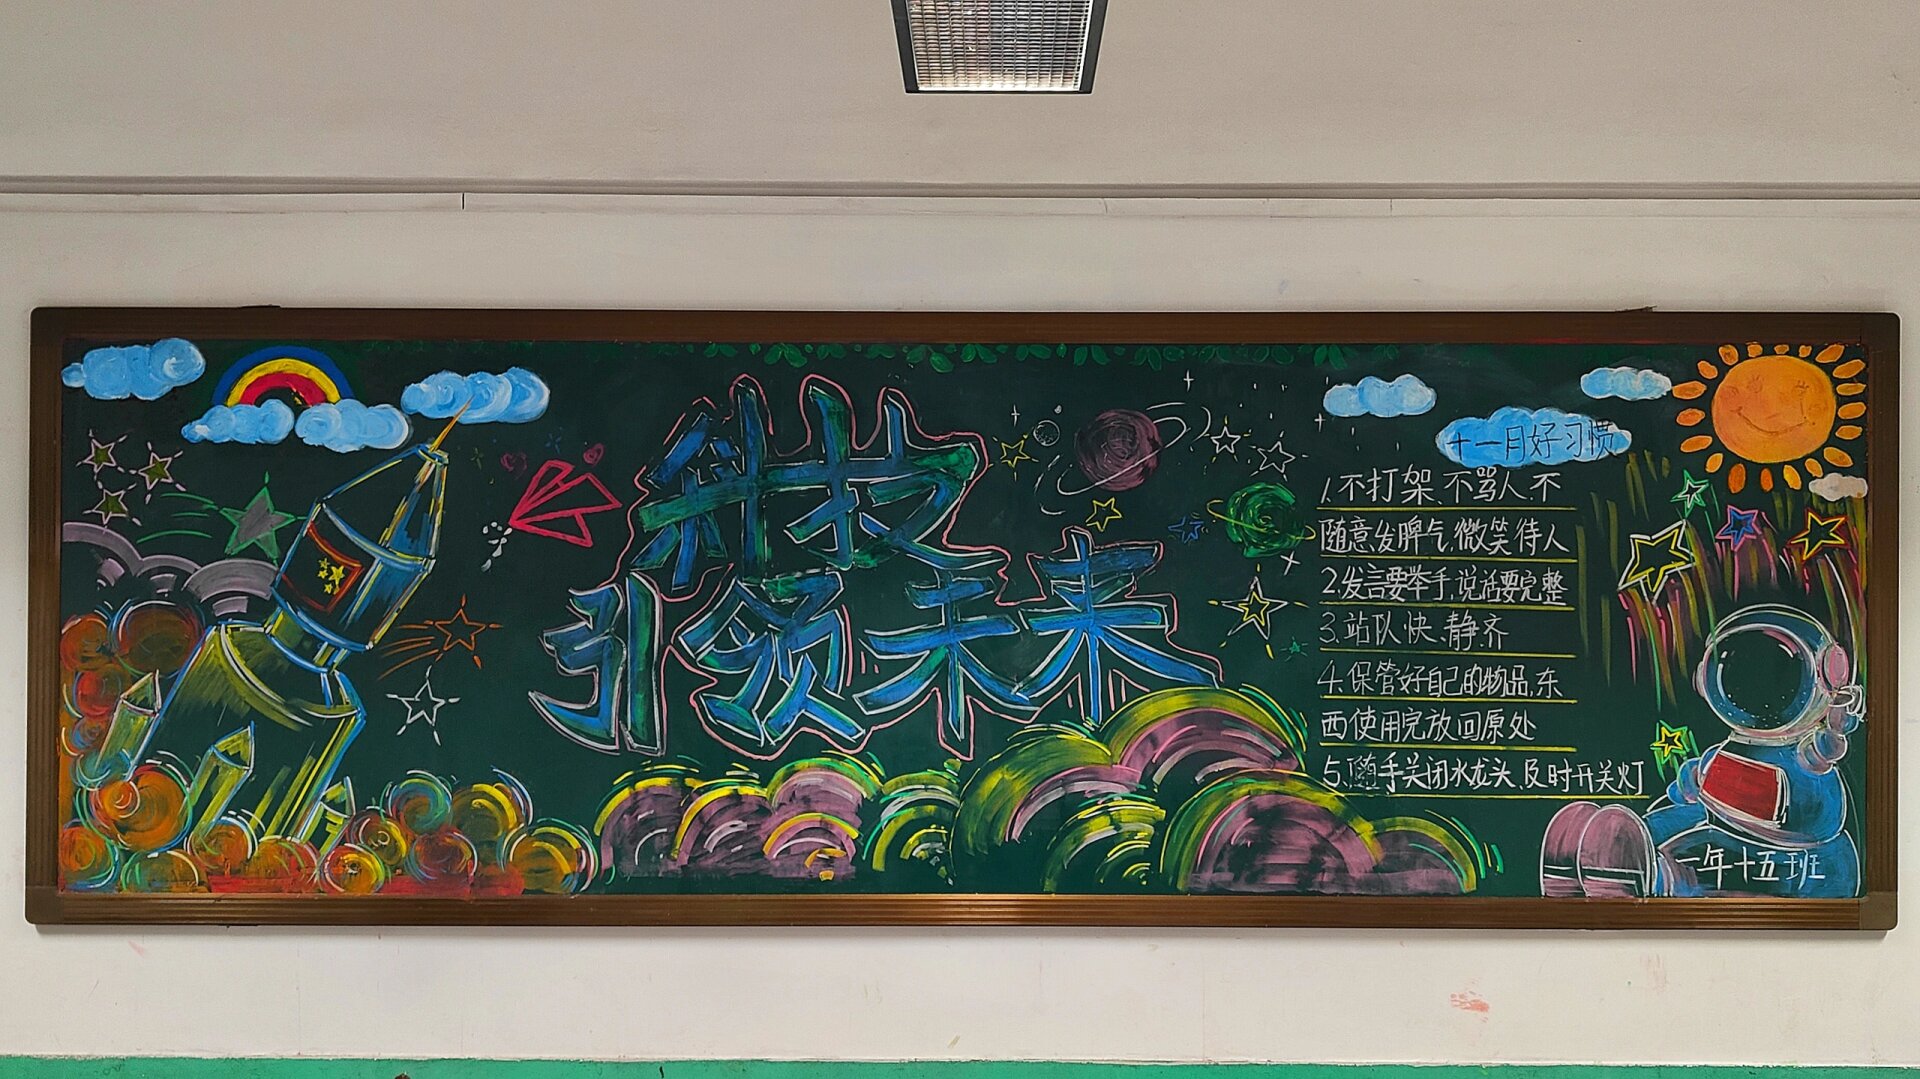 科技
引领未来
十一月好习惯
1.不打架、不骂人、不
随意发脾气,微笑待人
2.发言要举手,说话要完整
3.站队快、静、齐
4.保管好自己的物品,东
西使用完放回原处
5.随手关闭水龙头,及时开关灯
一年十五班